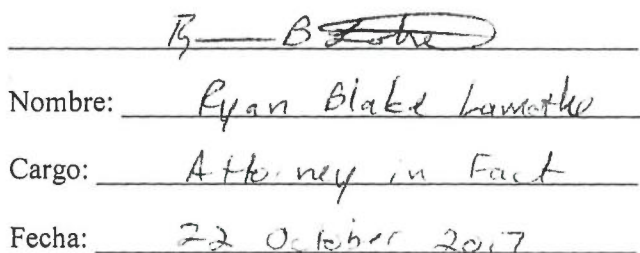 Nombre: Ryan Blake
Cargo: Attorney in Fact
Fecha: 22 October 2017